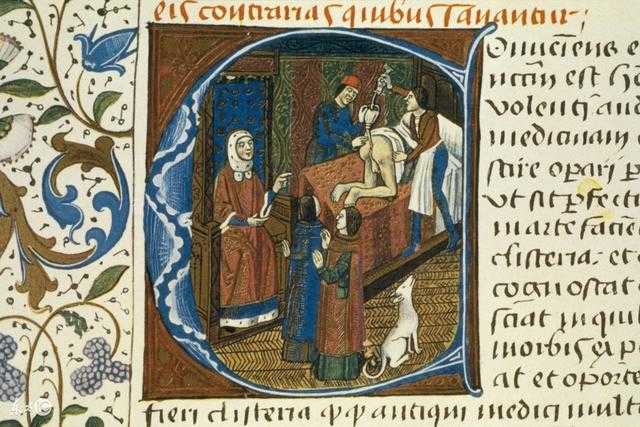 eis contrarias quibus sanantur;
Conueniens e
volenti au
medicinam
scire opari p
vt sit pfect
in arte facien
clisteria. et
cognoscat
sciat in qui
morbis ex p
at et oporte
fieri clisteria qp antiqui medici mult